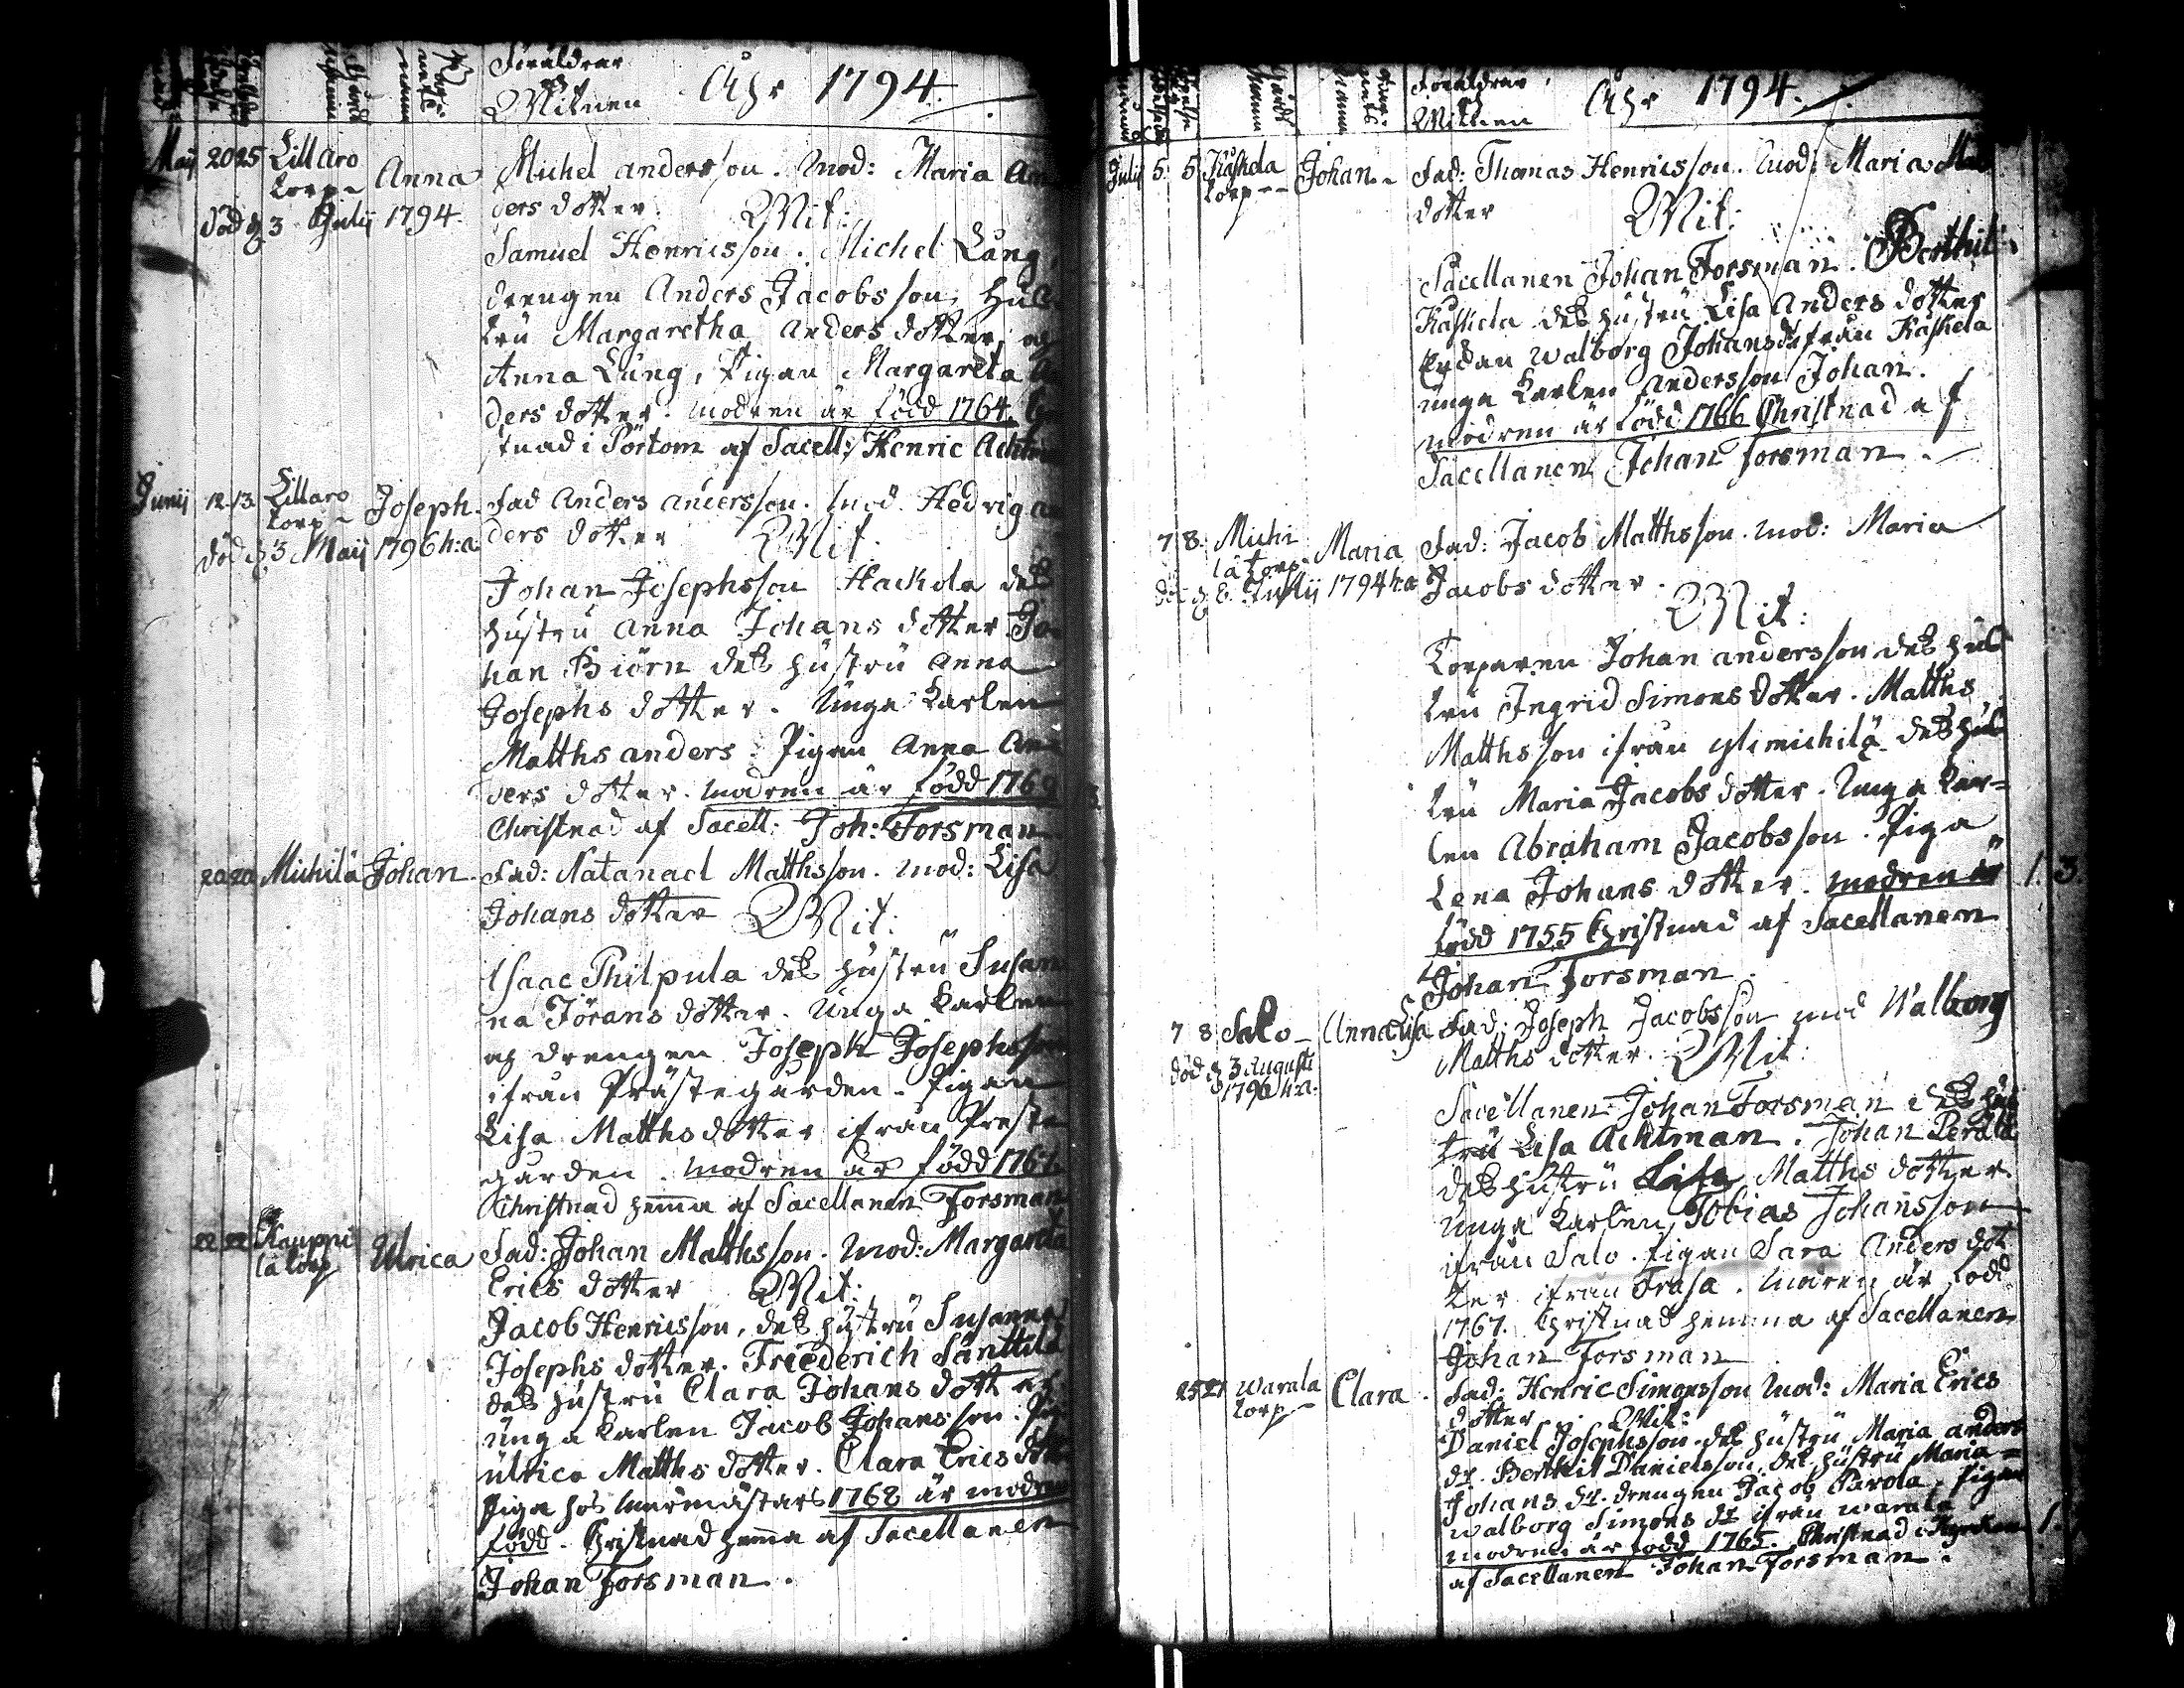 Föräldrar
Witnen
Åhr 1794.
Maij 20 25 Lillaro
torp Anna
död d. 3 Julij 1794.
Michel andersson. Mod: Maria An
ders dotter. Wit:
Samuel Henricsson. Michel Lång,
drengen Anders Jacobsson, Hus
tru Margaretha Anders dotter, og
Anna Lång, Pigan Margareta An
ders dotter. Modren är född 1764.
stnad i Pörtom af Sacell: Henric Achtman
Junij 12 13 Lillaro
torp Joseph.
död d. 3 Maij 1796 h:a
Fad Anders andersson. Mod. Hedvig an
ders dotter Wit.
Johan Josephsson Hackola des
hustru Anna Johans dotter. Jo
han Biörn des hustru Anna
Josephs dotter. Unga Karlen
Matths anders. Pigan Anna An
ders dotter. Modren är född 1769
Christnad af Sacell: Joh: Forsman
20 20 Michilä Johan.
Fad: Natanael Matthsson. Mod: Lisa
Johans dotter Wit:
Isaac Philpula des hustru Susan
na Jörans dotter. Unga Karlen
og drengen Joseph Josephsson
ifrån Prästegården. Pigan
Lisa Matthsdotter ifrån Preste
gården. Modren är född
Christnad hema af Sacellanen Forsman
22 22 Kauppi
la torp Ulrica
Fad: Johan Matthsson. Mod: Margareta
Erics dotter Wit:
Jacob Henricsson, des hustru Susanna
Josephs dotter. Friederich Sänttilä
des hustru Clara Johans dotter
unga Karlen Jacob Johansson. Pig
ulrica Matths dotter. Clara Erics dotter
Piga hos 1768 är modren
född. Christnad hema af Sacellanen
Johan Forsman.
Föräldrar
Witnen
Åhr 1794.
Julij 5 5 Kaskela
torp Johan
Fad: Thomas Henricsson. Mod: Maria
dotter Wit:
Sacellanen Johan Forsman. Berthil
Kaskela des hustru Lisa Anders dotter
Walborg Johansdr ifrån Kaskela
unga Karlen Andersson Johan.
modren är född 1766 Christnad af
Sacellanen Johan Forsman.
7 8. Michi
lä torp Maria
död d. 8. Julij 1794 h:a
Fad: Jacob Matthsson. Mod: Maria
Jacobs dotter.
Wit:
Torparen Johan andersson des hus
tru Ingrid Simons dotter. Matths
Matthsson ifrån ylimichilä des hus
tru Maria Jacobs dotter. Unga Kar=
len Abraham Jacobsson. Piga
Lena Johans dotter. modren är
född 1755 Christnad af Sacellanen
Johan Forsman.
1. 3.
7 8 Salo Anna Lisa
död d 3 Augusti
1796 h:a.
Fad: Joseph Jacobsson mod Walborg
Matths dotter. Wit:
Sacellanen Johan Forsman des hus
tru Lisa Achtman. Johan Perälä
des hustru Lisa Matths dotter.
Unga Karlen Tobias Johansson
ifrån Salo. Pigan Sara Anders dot
ter ifrån Trasa. Modren är född
1767. Christnad hemma af Sacellanen
Johan Forsman
25 27 Warala
torp Clara.
Fad: Henric Simonsson Mod: Maria Erics
dotter. Wit:
Daniel Josephsson. des hustru Maria anders
dr. Berthil Danielsson. des hustru Maria
Johans dr. drengen Jacob Parola. Pigan
Walborg Simons dr ifrån Warala
modren är född 1765. Christnad i Kyrckan
af Sacellanen Johan Forsman.